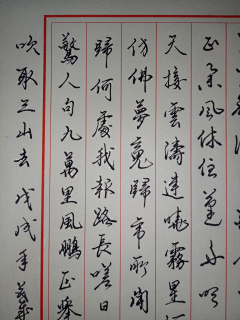 正舉風休住蓬舟吹
天接雲濤連曉霧星河
仿佛夢魂歸帝所聞
歸何處我報路長嗟日
驚人句九萬里風鵬正舉
吹取三山去 戊戌年